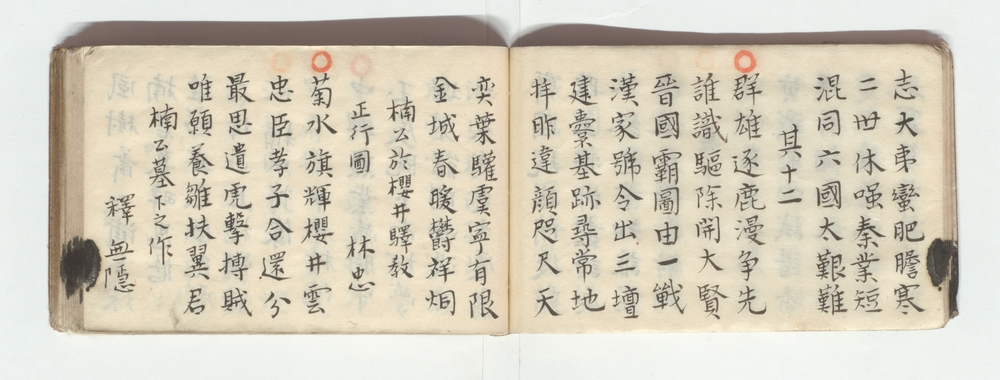 志大弟蠻肥膽寒
二世休强秦業短
混同六國太艱難
其十二
群雄逐鹿漫争先
誰識驅除開大賢
晉國霸圖由一戰
漢家號令出三壇
建櫜基跡尋常地
拝昨違顔咫尺天
奕葉驩虞寧有限
金城春暖欝祥烟
楠公於櫻井驛教
正行圖 林忠
菊水旗輝櫻井雲
忠臣孝子合還分
最思遺虎擊摶賊
唯願養雛扶翼君
楠公墓下之作
釋無隱